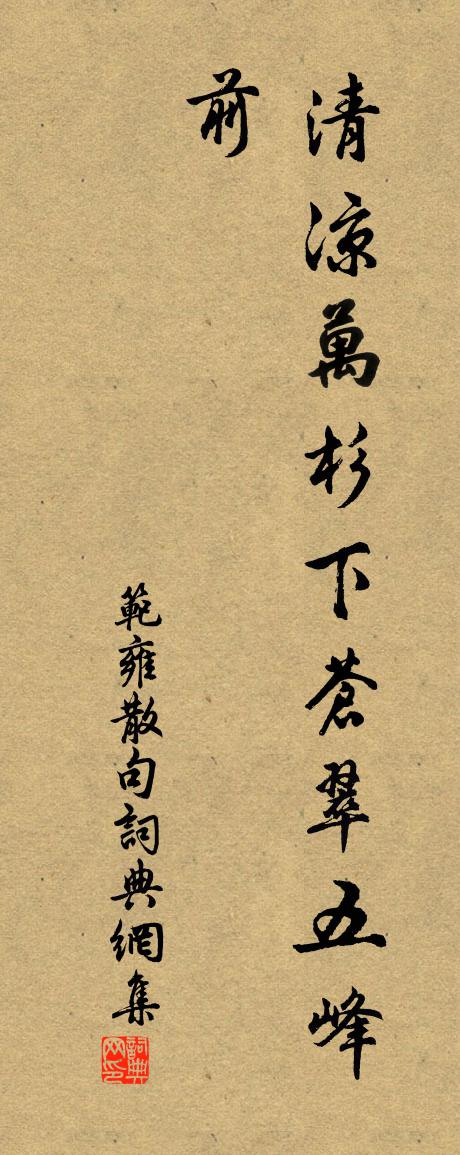 清涼萬杉下蒼翠五峰
前
範雍散句詞典網集
詞典
网印